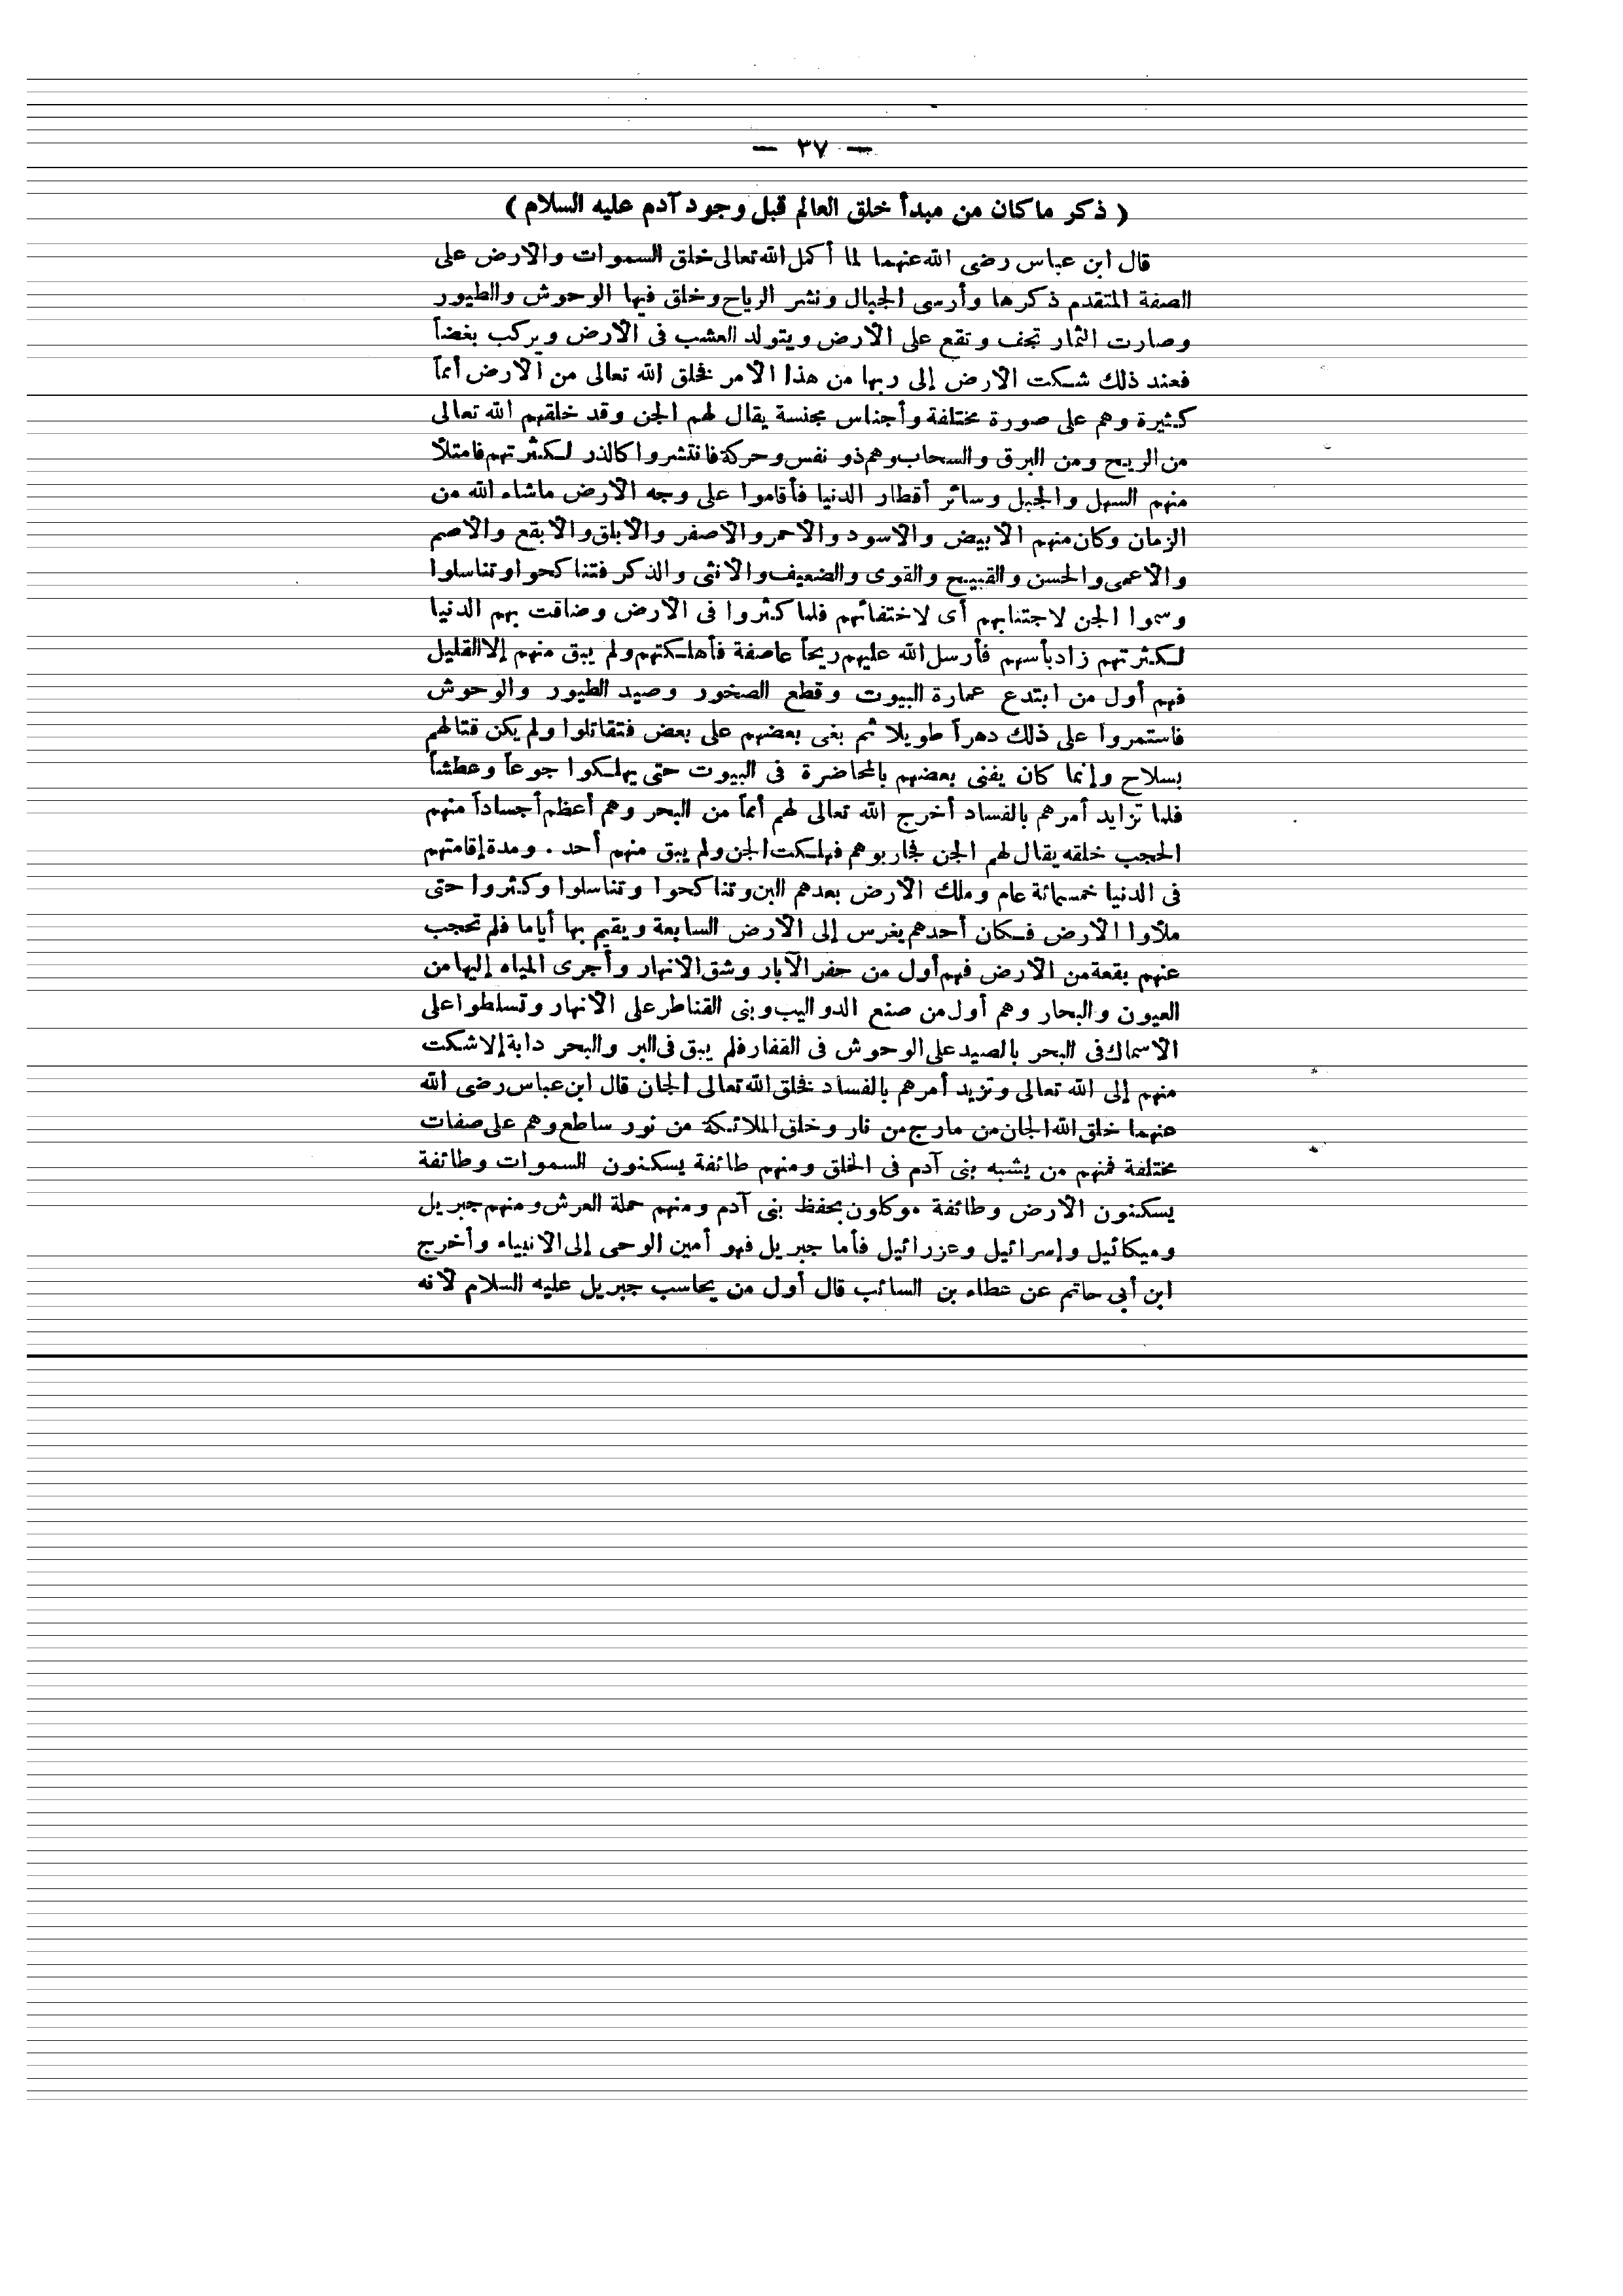 — ٣٧ —
( ذكر ما كان من مبدأ خلق العالم قبل وجود آدم عليه السلام )
قال ابن عباس رضى الله عنهما لما أكمل الله تعالى خلق السموات والارض على
الصفة المتقدم ذكرها وأرسى الجبال ونشر الرياح وخلق فيها الوحوش والطيور
وصارت الثمار تجف وتقع على الارض ويتولد العشب فى الارض ويركب بغضاً
فعند ذلك شكت الارض إلى ربها من هذا الامر فخلق الله تعالى من الارض أمماً
كثيرة وهم على صورة مختلفة وأجناس مجنسة يقال لهم الجن وقد خلقهم الله تعالى
من الريح ومن البرق والسحاب وهم ذو نفس وحركة فانتشروا كالذر لكثرتهم فامتلأ
منهم السهل والجبل وسائر أقطار الدنيا فأقاموا على وجه الارض ماشاء الله من
الزمان وكان منهم الابيض والاسود والاحمر والاصفر والابلق والابقع والاصم
والاعمى والحسن والقبيح والقوى والضعيف والانثى والذكر فتناكحوا وتناسلوا
وسموا الجن لاجتنابهم أى لاختفائهم فلما كثروا فى الارض وضاقت بهم الدنيا
لكثرتهم زاد بأسهم فأرسل الله عليهم ريحاً عاصفة فأهلكتهم ولم يبق منهم إلا القليل
فهم أول من ابتدع عمارة البيوت وقطع الصخور وصيد الطيور والوحوش
فاستمروا على ذلك دهراً طويلا ثم بغى بعضهم على بعض فتقاتلوا ولم يكن قتالهم
بسلاح وإنما كان يفنى بعضهم بالمحاضرة فى البيوت حتى يهلكوا جوعاً وعطشاً
فلما تزايد أمرهم بالفساد أخرج الله تعالى لهم أمماً من البحر وهم أعظم أجساداً منهم
الحجب خلقه يقال لهم الجن فحاربوهم فهلكت الجن ولم يبق منهم أحد . ومدة إقامتهم
فى الدنيا خمسمائة عام وملك الارض بعدهم البن وتناكحوا وتناسلوا وكثروا حتى
ملأوا الارض فكان أحدهم يغرس إلى الارض السابعة ويقيم بها أياما فلم تحجب
عنهم بقعة من الارض فهم أول من حفر الآبار وشق الانهار وأجرى المياه إليها من
العيون والبحار وهم أول من صنع الدواليب وبنى القناطر على الانهار وتسلطوا على
الاسماك فى البحر بالصيد على الوحوش فى القفار فلم يبق فى البر والبحر دابة إلا شكت
منهم إلى الله تعالى وتزيد أمرهم بالفساد فخلق الله تعالى الجان قال ابن عباس رضى الله
عنهما خلق الله الجان من مارج من نار وخلق الملائكة من نور ساطع وهم على صفات
مختلفة فمنهم من يشبه بنى آدم فى الخلق ومنهم طائفة يسكنون السموات وطائفة
يسكنون الارض وطائفة موكلون بحفظ بنى آدم ومنهم حملة العرش ومنهم جبريل
وميكائيل وإسرائيل وعزرائيل فأما جبريل فهو أمين الوحى إلى الانبياء وأخرج
ابن أبى حاتم عن عطاء بن السائب قال أول من يحاسب جبريل عليه السلام لانه